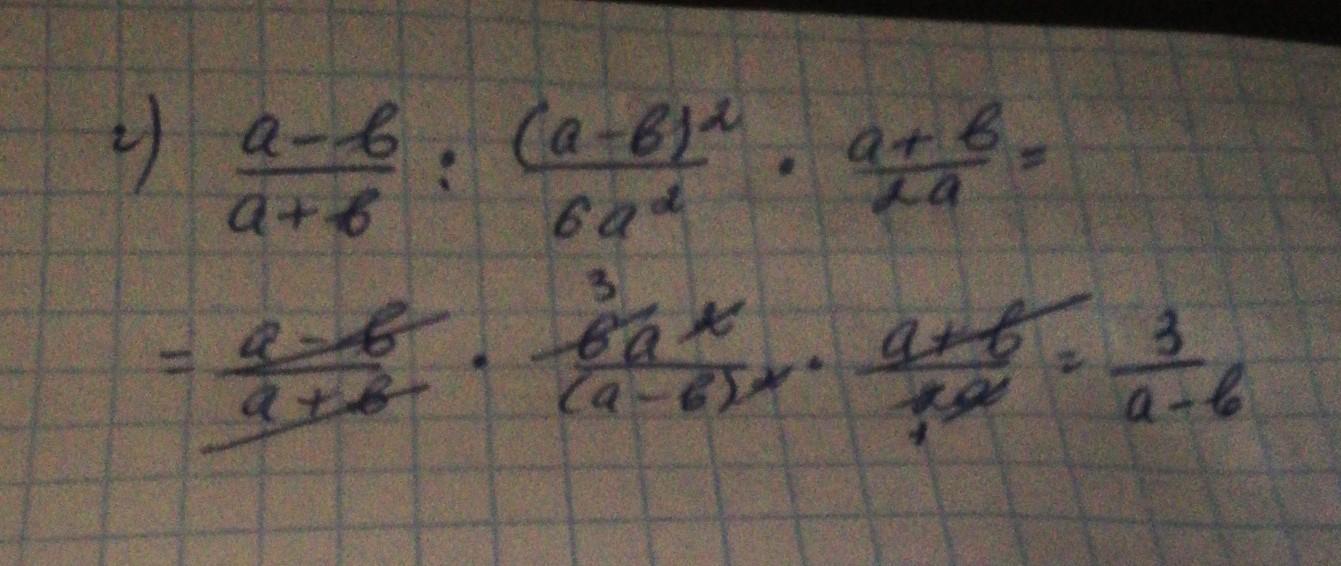 г) (a-b)/(a+b) : (a-b)²/(6a²) · (a+b)/(2a) =
= (a-b)/(a+b) · 3 6a²/(a-b)² · (a+b)/(2a) 1 = 3/(a-b)